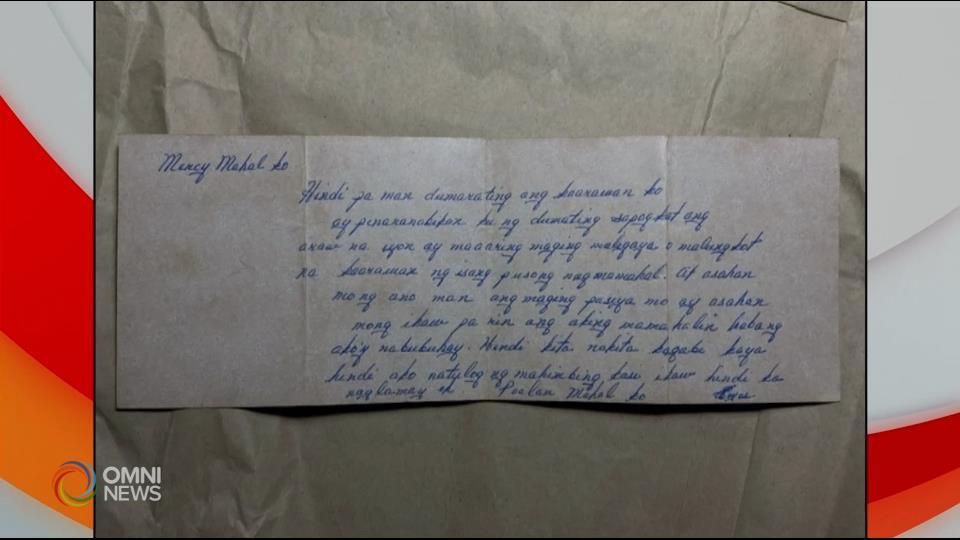 Mercy Mahal ko
Hindi pa man dumarating ang kaarawan ko
ay pinananabikan ko ng dumating sapagkat ang
araw na iyon ay maaaring maging maligaya o malungkot
na kaarawan ng isang pusong nagmamahal. At asahan
mong ano man ang maging pasiya mo ay asahan
mong ikaw pa rin ang aking mamahalin habang
ako'y nabubuhay. Hindi kita nakita kagabi kaya
hindi ako natulog ng mahimbing kasi ikaw hindi ka
naglamay eh. Paalam Mahal ko
OMNI
NEWS